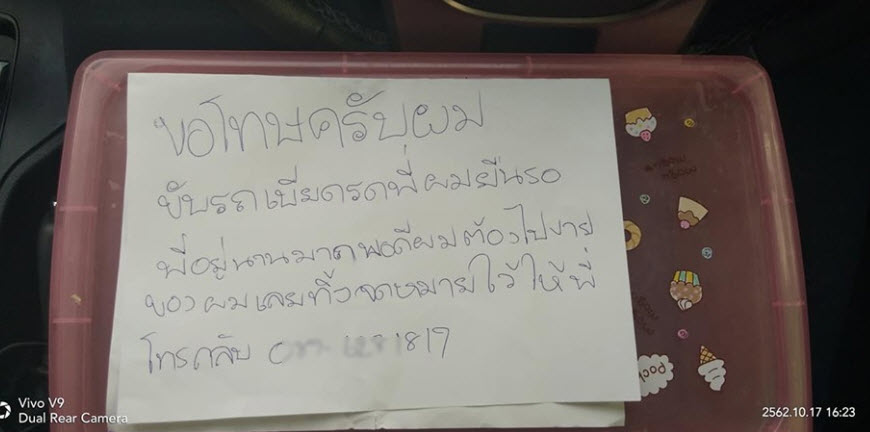 ขอโทษครับผม
ขับรถเบียดรถพี่ผมยืนรอ
พี่อยู่นานมากพอดีผมต้องไปขาย
ของผมเลยทิ้งจดหมายไว้ให้พี่
โทรกลับ 0 817
Pooh
Vivo V9
Dual Rear Camera
2562.10.17 16:23